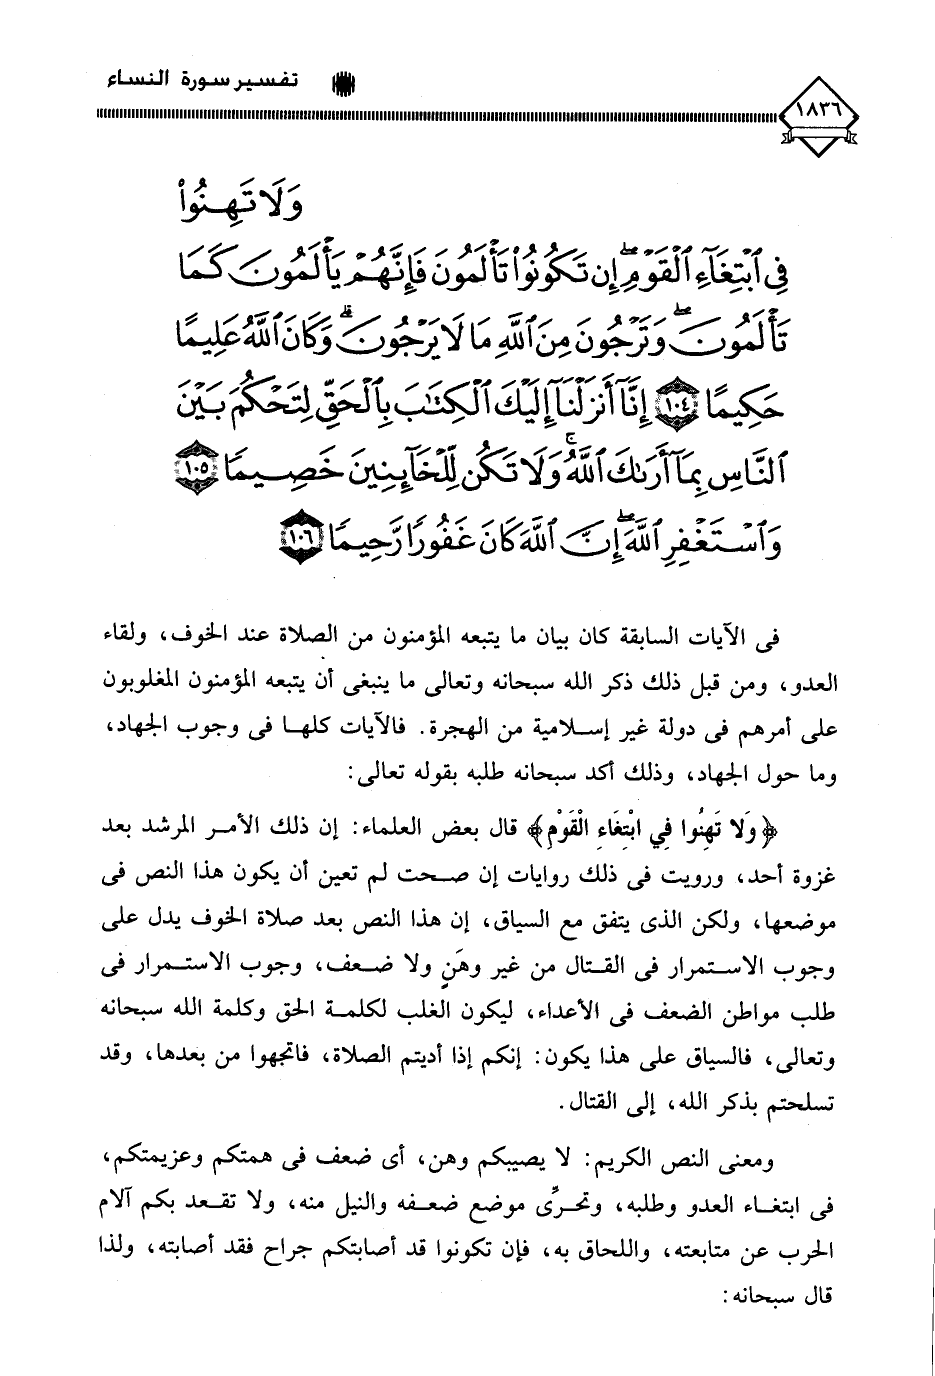 تفسير سورة النساء
١٨٣٦
وَلَا تَهِنُوا۟
فِى ٱبْتِغَآءِ ٱلْقَوْمِ ۖ إِن تَكُونُوا۟ تَأْلَمُونَ فَإِنَّهُمْ يَأْلَمُونَ كَمَا
تَأْلَمُونَ ۖ وَتَرْجُونَ مِنَ ٱللَّهِ مَا لَا يَرْجُونَ ۗ وَكَانَ ٱللَّهُ عَلِيمًا
حَكِيمًا ١٠٤ إِنَّآ أَنزَلْنَآ إِلَيْكَ ٱلْكِتَٰبَ بِٱلْحَقِّ لِتَحْكُمَ بَيْنَ
ٱلنَّاسِ بِمَآ أَرَىٰكَ ٱللَّهُ ۚ وَلَا تَكُن لِّلْخَآئِنِينَ خَصِيمًا ١٠٥
وَٱسْتَغْفِرِ ٱللَّهَ ۖ إِنَّ ٱللَّهَ كَانَ غَفُورًا رَّحِيمًا ١٠٦
فى الآيات السابقة كان بيان ما يتبعه المؤمنون من الصلاة عند الخوف، ولقاء
العدو، ومن قبل ذلك ذكر الله سبحانه وتعالى ما ينبغى أن يتبعه المؤمنون المغلوبون
على أمرهم فى دولة غير إسلامية من الهجرة. فالآيات كلها فى وجوب الجهاد،
وما حول الجهاد، وذلك أكد سبحانه طلبه بقوله تعالى:
﴿وَلا تَهِنُوا فِي ابْتِغَاءِ الْقَوْمِ﴾ قال بعض العلماء: إن ذلك الأمر المرشد بعد
غزوة أحد، ورويت فى ذلك روايات إن صحت لم تعين أن يكون هذا النص فى
موضعها، ولكن الذى يتفق مع السياق، إن هذا النص بعد صلاة الخوف يدل على
وجوب الاستمرار فى القتال من غير وهَنٍ ولا ضعف، وجوب الاستمرار فى
طلب مواطن الضعف فى الأعداء، ليكون الغلب لكلمة الحق وكلمة الله سبحانه
وتعالى، فالسياق على هذا يكون: إنكم إذا أديتم الصلاة، فاتجهوا من بعدها، وقد
تسلحتم بذكر الله، إلى القتال.
ومعنى النص الكريم: لا يصيبكم وهن، أى ضعف فى همتكم وعزيمتكم،
فى ابتغاء العدو وطلبه، وتحرِّى موضع ضعفه والنيل منه، ولا تقعد بكم آلام
الحرب عن متابعته، واللحاق به، فإن تكونوا قد أصابتكم جراح فقد أصابته، ولذا
قال سبحانه: